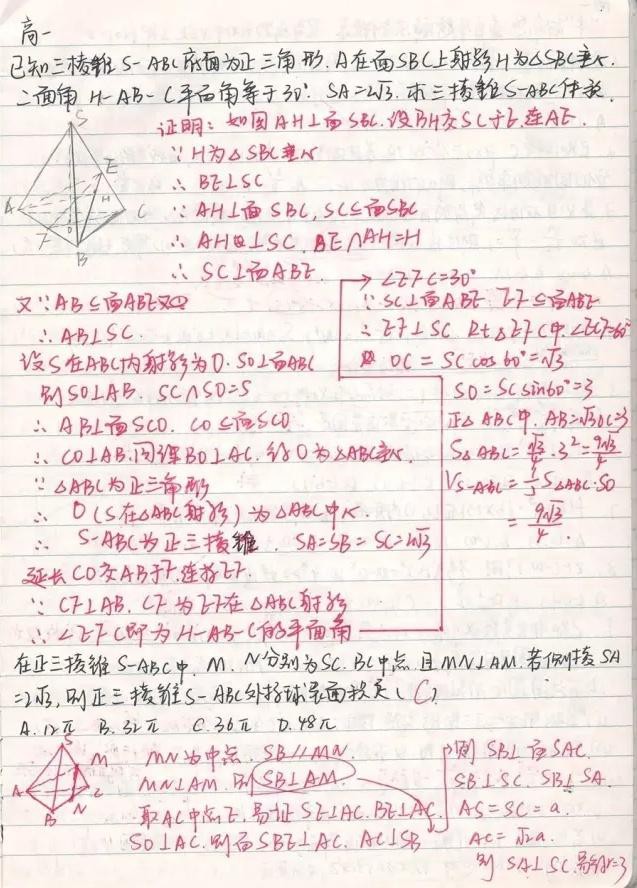 高一
已知三棱锥 S-ABC 底面为正三角形. A在面SBC上射影H为△SBC垂心.
二面角 H-AB-C 平面角等于30°. SA=2√3. 求三棱锥S-ABC体积.
证明: 如图 AH⊥面SBC. 设BH交SC于E. 连AE.
∵ H为△SBC垂心
∴ BE⊥SC
∵ AH⊥面SBC, SC⊆面SBC
∴ AH⊥SC. BE∩AH=H
∴ SC⊥面ABE.
又∵AB⊆面ABE
∴ AB⊥SC.
设S在ABC内射影为O. SO⊥面ABC
则SO⊥AB. SC∩SO=S
∴ AB⊥面SCO. CO⊆面SCO
∴ CO⊥AB. 同理BO⊥AC. 得O为△ABC垂心.
∵ △ABC为正三角形
∴ O(S在△ABC射影)为△ABC中心.
∴ S-ABC为正三棱锥. SA=SB=SC=2√3
延长CO交AB于F. 连接EF.
∵ CF⊥AB. CF为EF在△ABC射影
∴ ∠EFC即为H-AB-C的平面角
→ ∠EFC=30°
∵ SC⊥面ABE EF⊆面ABE
∴ EF⊥SC Rt△EFC中∠ECF=60°
OC=SC cos60°=√3
SO=SC sin60°=3
正△ABC中. AB=√3OC=3
S△ABC=√3/4·3²=9√3/4
V S-ABC=1/3 S△ABC·SO
=9√3/4.
在正三棱锥 S-ABC中, M、N分别为SC、BC中点, 且MN⊥AM. 若侧棱SA
=2√3, 则正三棱锥S-ABC外接球表面积是( C )
A.12π B.32π C.36π D.48π
MN为中点. SB//MN.
MN⊥AM. 则SB⊥AM.
取AC中点E. 易证SE⊥AC. BE⊥AC.
SO⊥AC. 则面SBE⊥AC. AC⊥SB
则 SB⊥面SAC.
SB⊥SC. SB⊥SA.
AS=SC=a.
AC=√2a.
则 SA⊥SC. 易得r=3
S
E
H
A
C
O
F
B
S
M
A
C
N
B